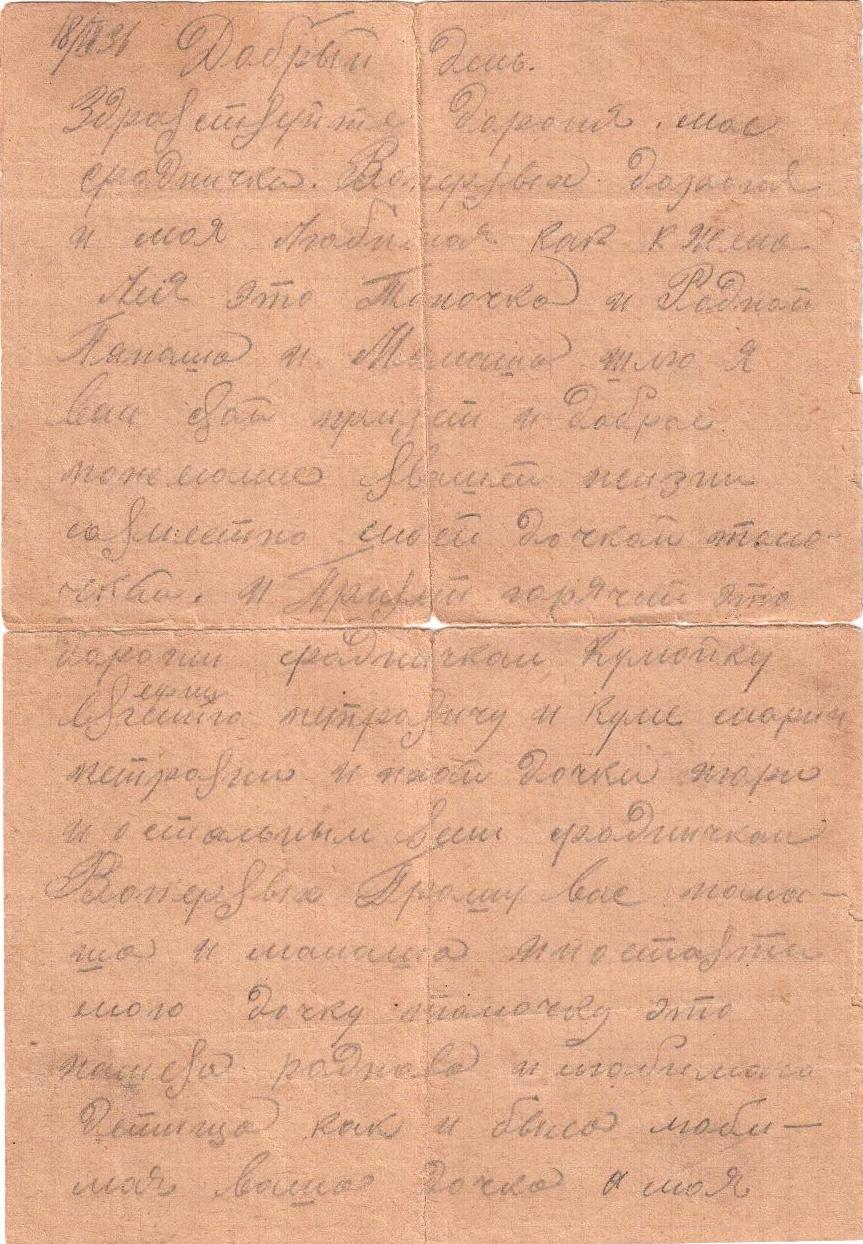 Добрый день.
Здравствуйте дорогия мое
сродничка. Вопервых дорогая
и моя любимая как и жена
Лия это Тоночка и Родной
Папаша и Мамаша шлю я
вам свой привет и доброе
пожелание ввашей жизни
совместно смоей дочкой тамо-
чкай. и Привет горячий это
дарогим сродничкам Кумоньку
петровичу и куме марии
петровни и ихой дочки нюри
и остальным всем сродничкам
Вопервых Прошу вас папа-
ша и мамаша нноставти
мою дочку тамочку это
нашева роднова и любимого
детища как и была люби-
мая ваша дочка а моя